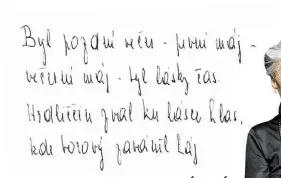 Byl pozdní večer - první máj -
večerní máj - byl lásky čas.
Hrdliččin zval ku lásce hlas,
kde borový zaváněl háj